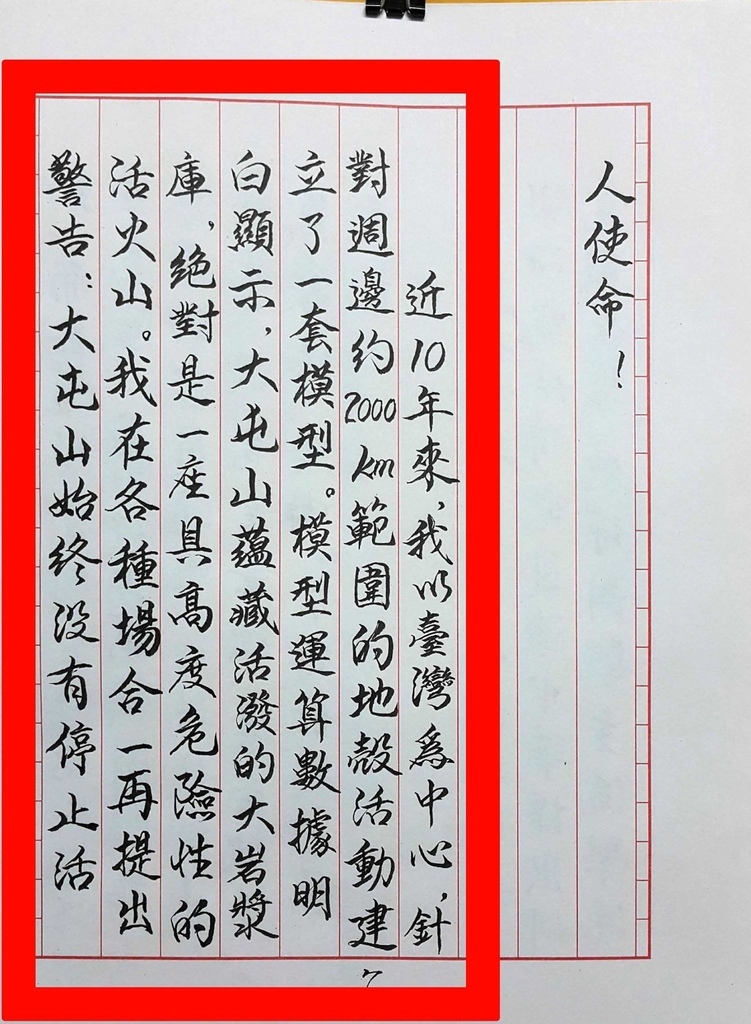 人使命！
近10年來，我以臺灣為中心，針
對週邊約2000km範圍的地殼活動建
立了一套模型。模型運算數據明
白顯示，大屯山蘊藏活潑的大岩漿
庫，絕對是一座具高度危險性的
活火山。我在各種場合一再提出
警告：大屯山始終没有停止活